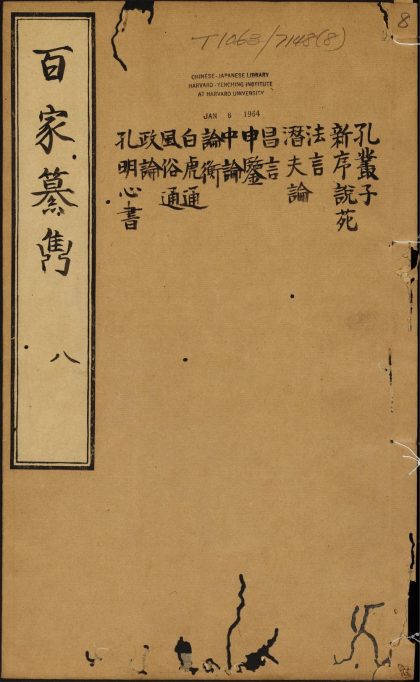 T1063/7148(8)
8
CHINESE-JAPANESE LIBRARY
HARVARD-YENCHING INSTITUTE
AT HARVARD UNIVERSITY
JAN 6 1964
孔叢子
新序說苑
法言
潛夫論
昌言
申鑒
中論
論衡
白虎通
風俗通
政論
孔明心書
百家纂雋
八